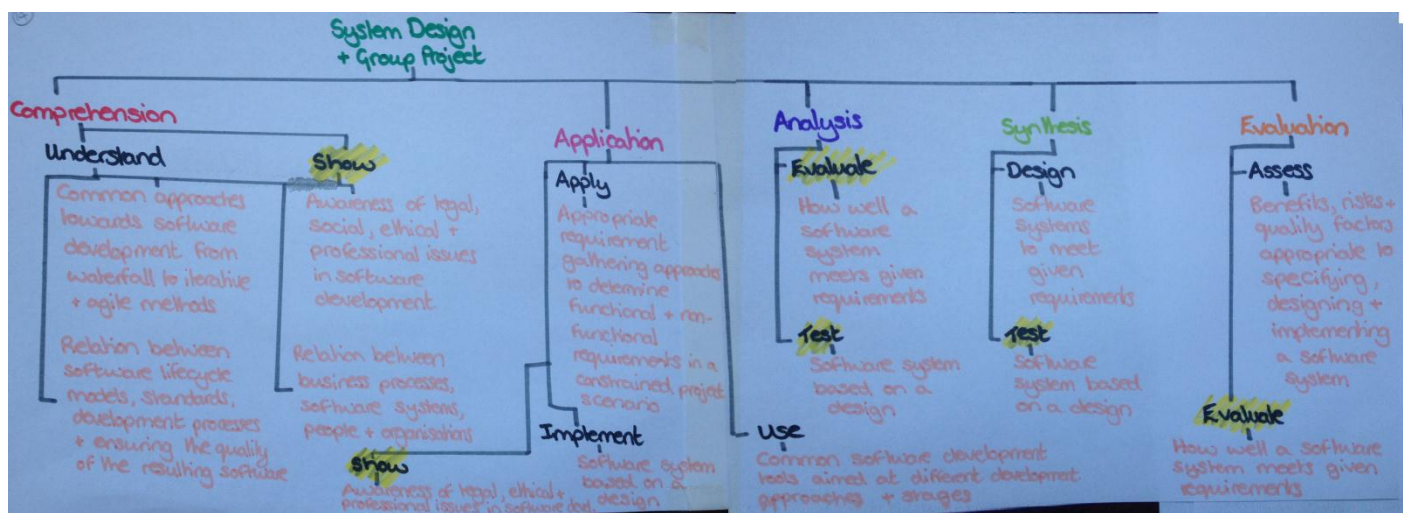 System Design
+ Group Project
Comprehension
Understand
Common approaches
towards software
development from
waterfall to iterative
+ agile methods
Relation between
software lifecycle
models, standards,
development processes
+ ensuring the quality
of the resulting software
Show
Awareness of legal,
social, ethical +
professional issues
in software
development
Relation between
business processes,
software systems,
people + organisations
Application
Apply
Appropriate
requirement
gathering approaches
to determine
functional + non-
functional
requirements in a
constrained project
scenario
Show
Awareness of legal, ethical +
professional issues in software
Implement
Software system
based on a
design
Use
Common software development
tools aimed at different developmt.
approaches + stages
Analysis
Evaluate
How well a
software
system
meets given
requirements
Test
Software system
based on a
design
Synthesis
Design
Software
systems
to meet
given
requirements
Test
Software
system based
on a design
Evaluation
Assess
Benefits, risks +
quality factors
appropriate to
specifying,
designing +
implementing
a software
system
Evaluate
How well a software
system meets given
requirements